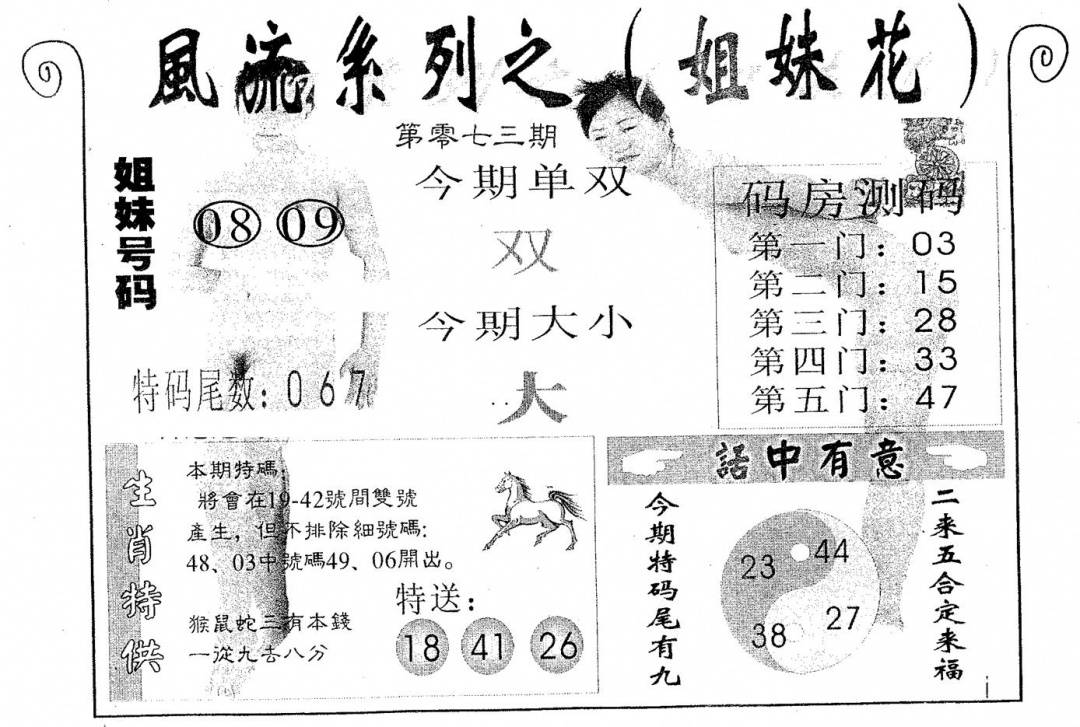 風流系列之（姐妹花）
第零七三期
姐妹号码
08 09
今期单双
双
今期大小
大
特码尾数：067
码房测码
第一门：03
第二门：15
第三门：28
第四门：33
第五门：47
生肖特供
本期特碼：
將會在19-42號間雙號
產生，但不排除細號碼：
48、03中號碼49、06開出。
猴鼠蛇三有本錢
一從九去八分
特送：
18 41 26
話中有意
今期特码尾有九
23 44
38 27
二来五合定来福